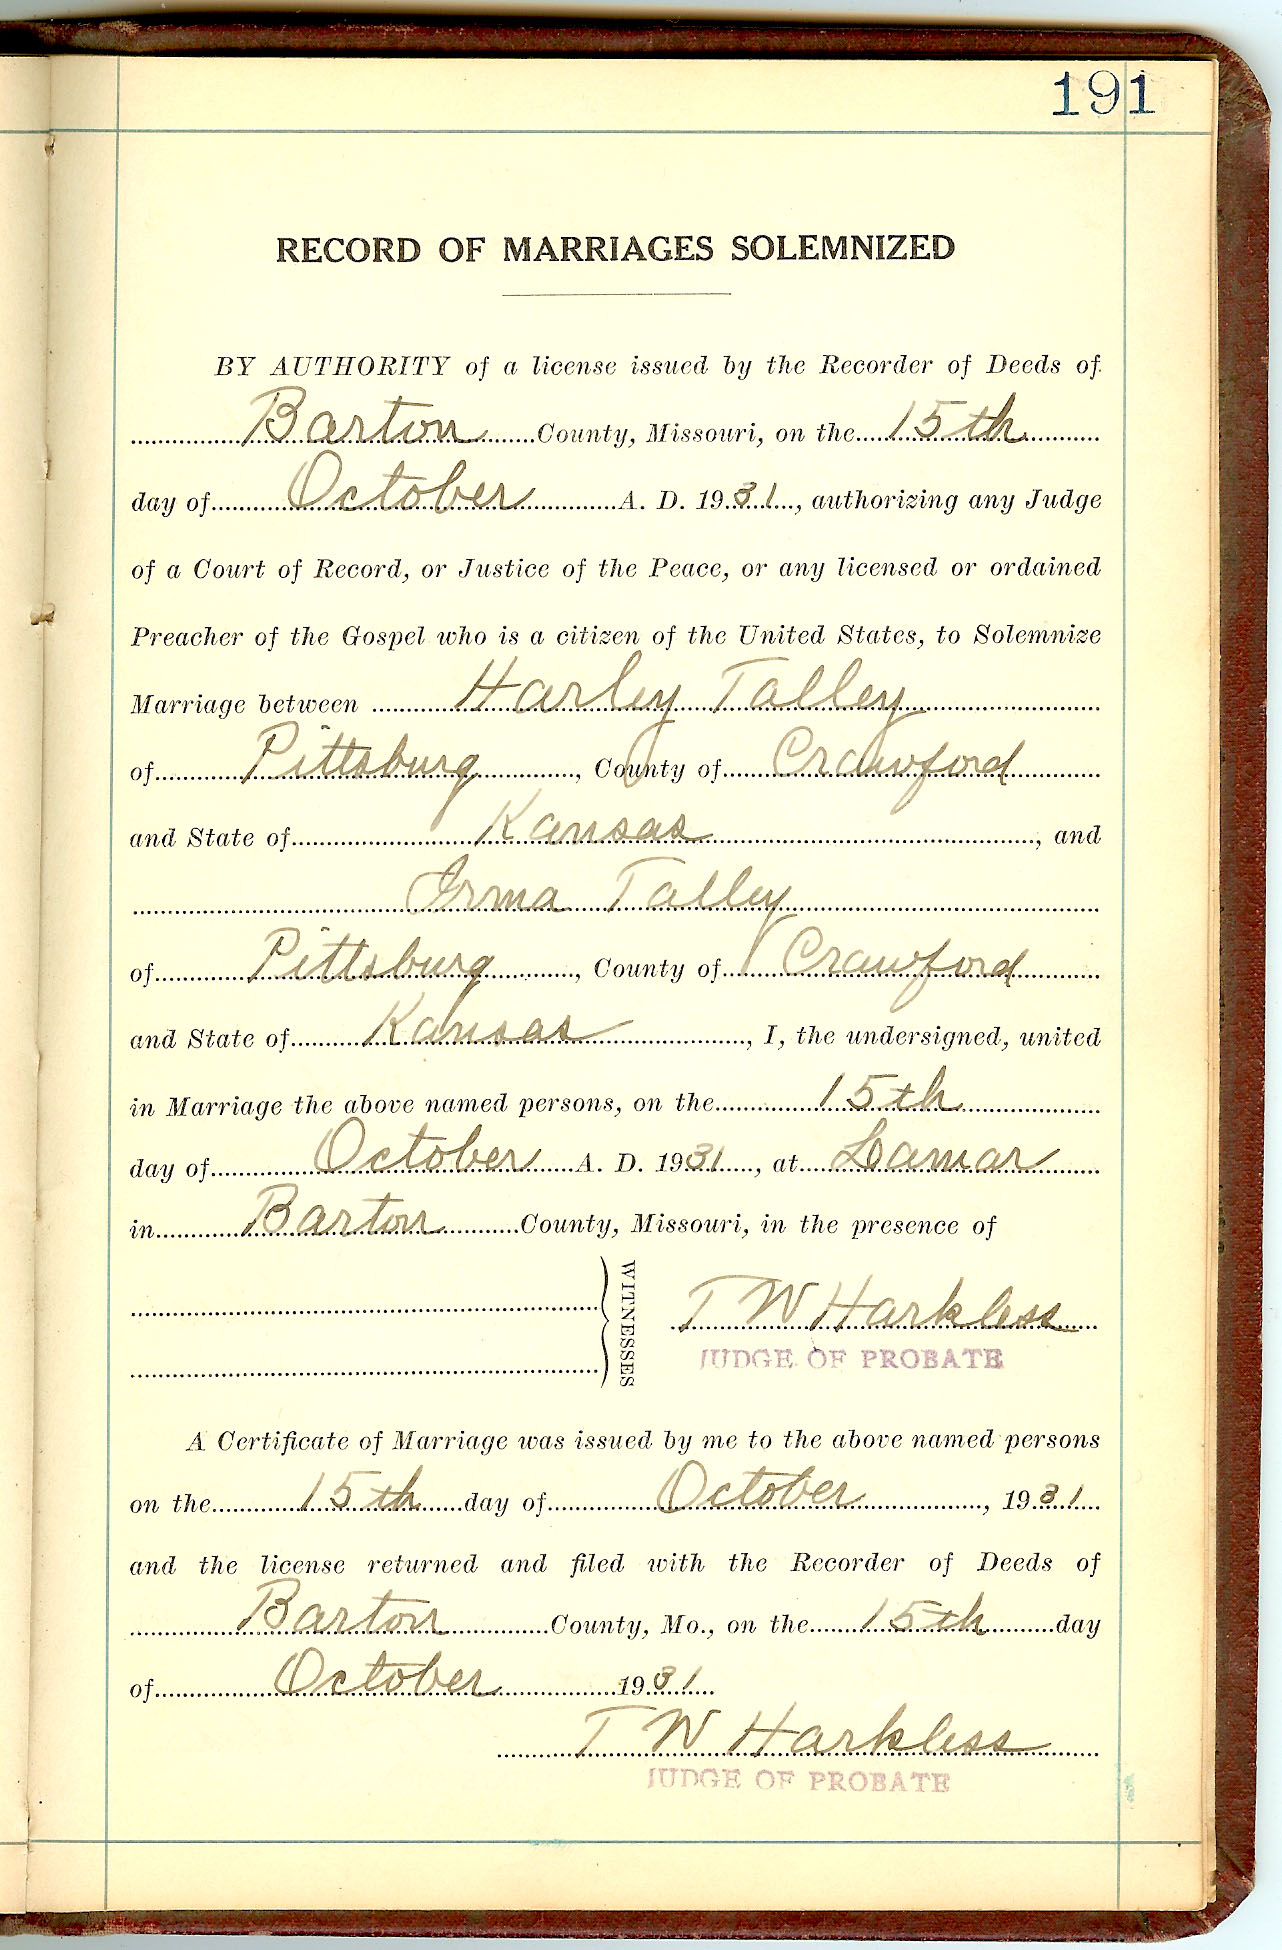 191
RECORD OF MARRIAGES SOLEMNIZED
BY AUTHORITY of a license issued by the Recorder of Deeds of
Barton County, Missouri, on the 15th
day of October A. D. 1931, authorizing any Judge
of a Court of Record, or Justice of the Peace, or any licensed or ordained
Preacher of the Gospel who is a citizen of the United States, to Solemnize
Marriage between Harley Talley
of Pittsburg, County of Crawford
and State of Kansas, and
Irma Talley
of Pittsburg, County of Crawford
and State of Kansas, I, the undersigned, united
in Marriage the above named persons, on the 15th
day of October A. D. 1931, at Lamar
in Barton County, Missouri, in the presence of
WITNESSES
T W Harkless
JUDGE OF PROBATE
A Certificate of Marriage was issued by me to the above named persons
on the 15th day of October, 1931
and the license returned and filed with the Recorder of Deeds of
Barton County, Mo., on the 15th day
of October 1931
T W Harkless
JUDGE OF PROBATE